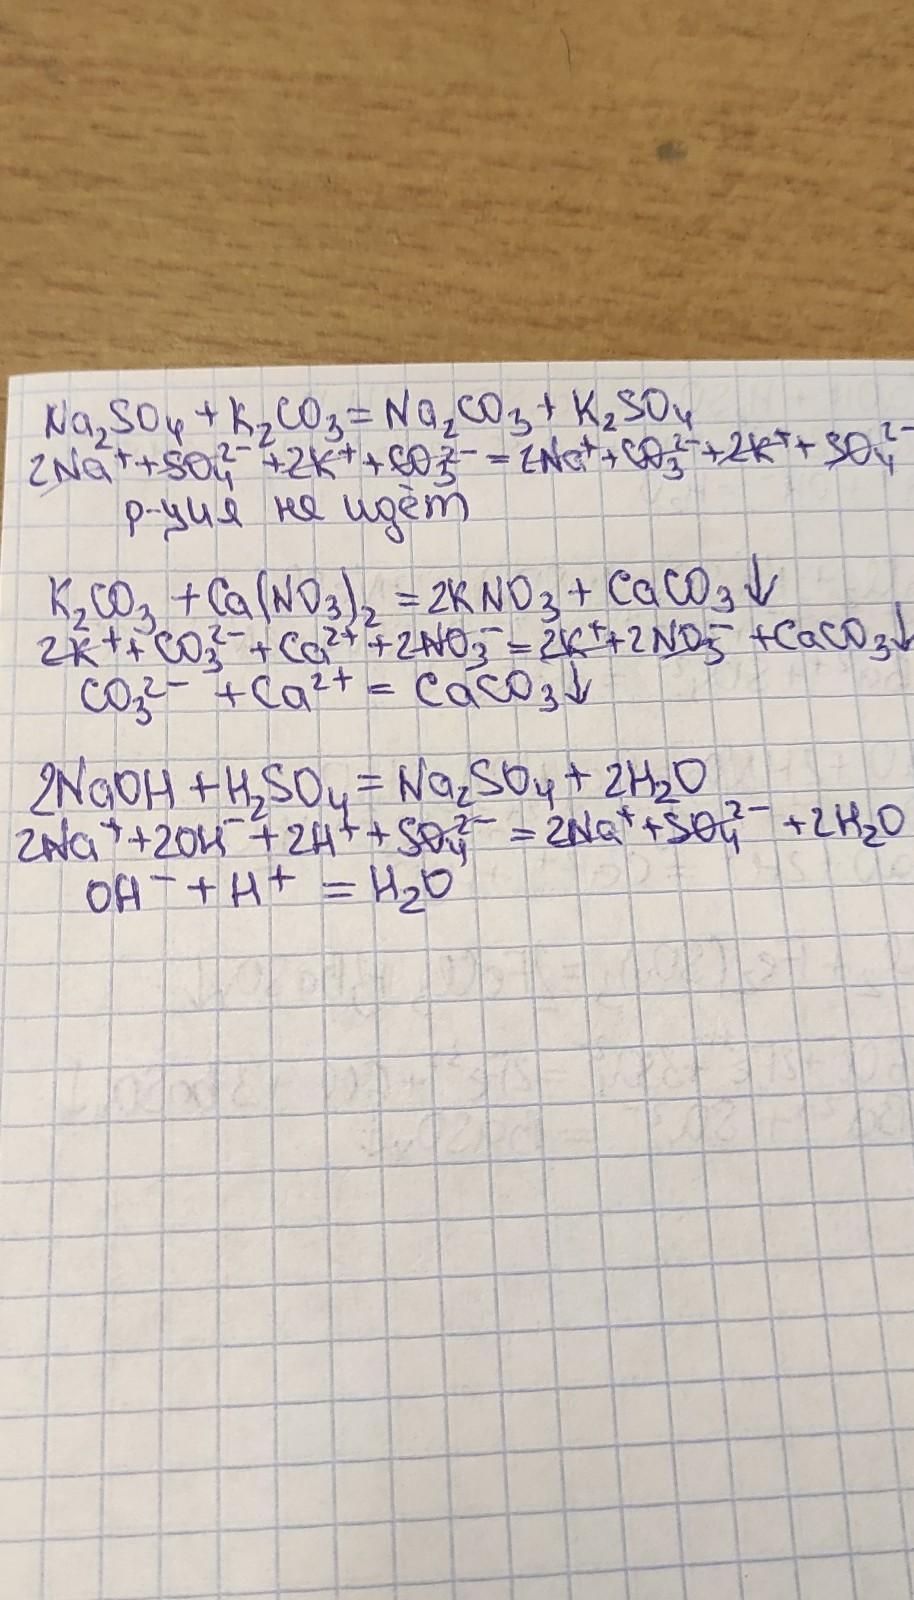 Na₂SO₄ + K₂CO₃ = Na₂CO₃ + K₂SO₄
2Na⁺ + SO₄²⁻ + 2K⁺ + CO₃²⁻ = 2Na⁺ + CO₃²⁻ + 2K⁺ + SO₄²⁻
р-ция не идёт
K₂CO₃ + Ca(NO₃)₂ = 2KNO₃ + CaCO₃↓
2K⁺ + CO₃²⁻ + Ca²⁺ + 2NO₃⁻ = 2K⁺ + 2NO₃⁻ + CaCO₃↓
CO₃²⁻ + Ca²⁺ = CaCO₃↓
2NaOH + H₂SO₄ = Na₂SO₄ + 2H₂O
2Na⁺ + 2OH⁻ + 2H⁺ + SO₄²⁻ = 2Na⁺ + SO₄²⁻ + 2H₂O
OH⁻ + H⁺ = H₂O